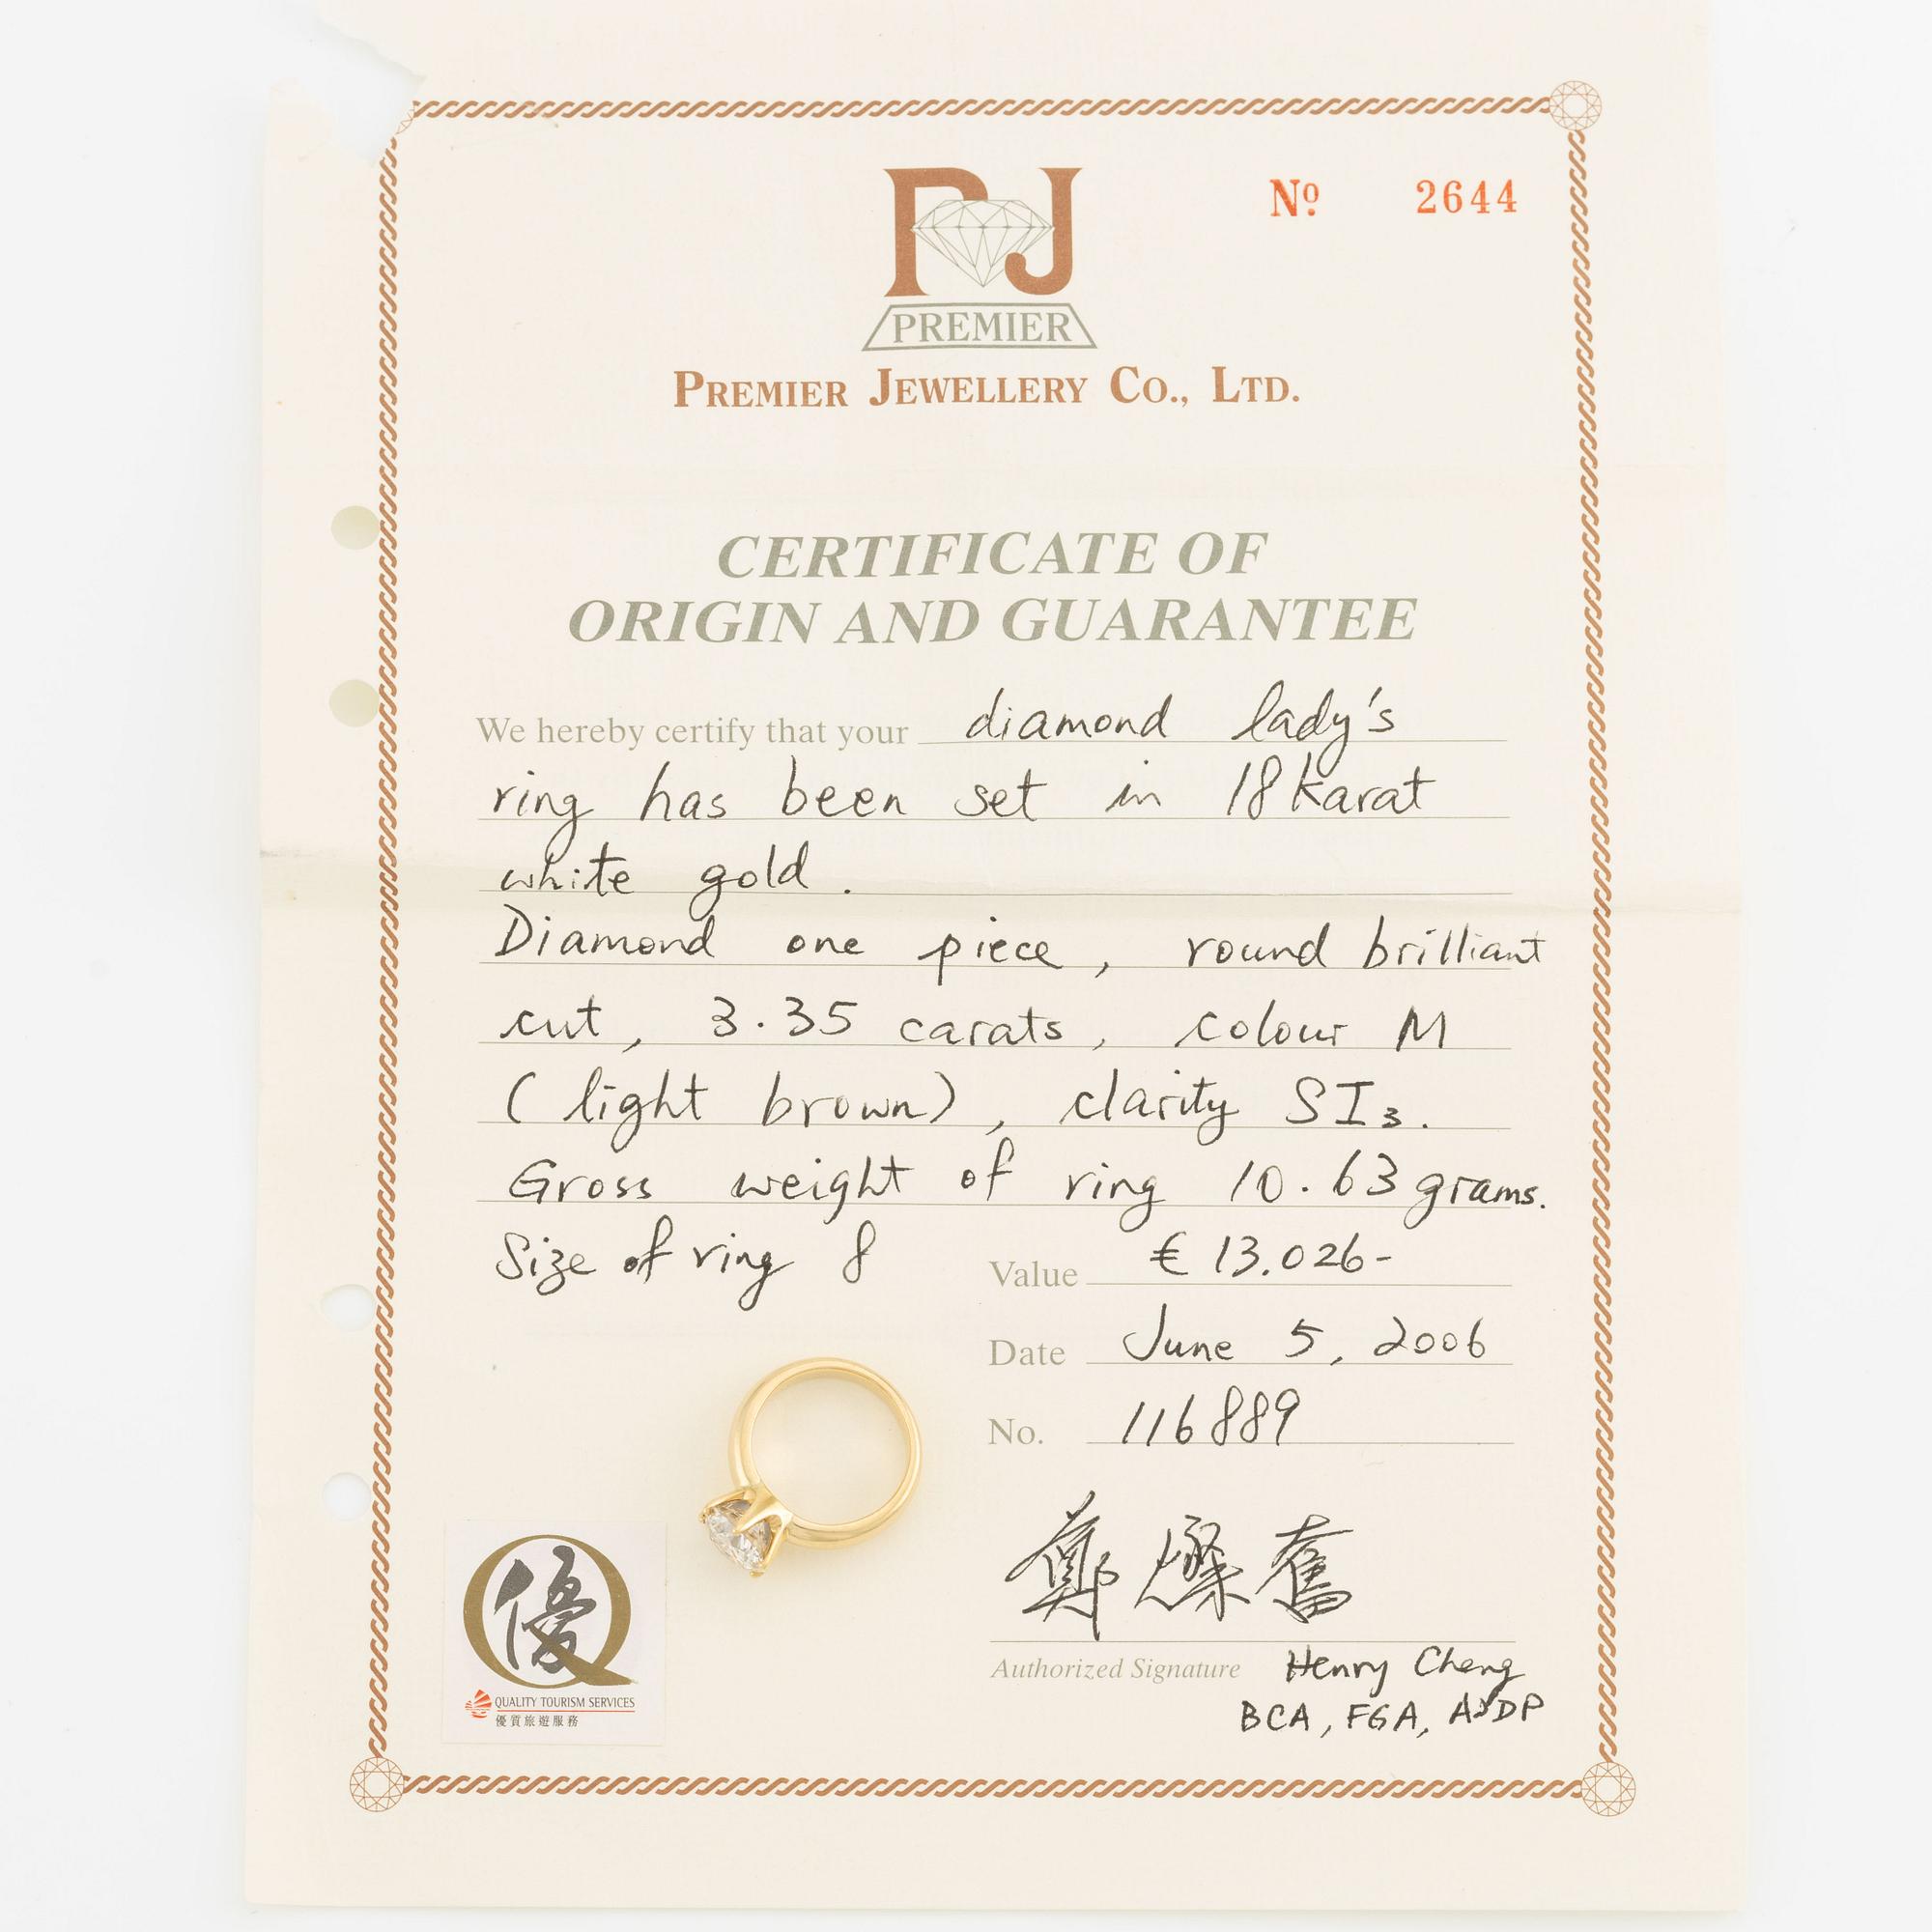 PJ
Nº 2644
PREMIER
PREMIER JEWELLERY CO., LTD.
CERTIFICATE OF
ORIGIN AND GUARANTEE
We hereby certify that your diamond lady's
ring has been set in 18 karat
white gold.
Diamond one piece, round brilliant
cut, 3.35 carats, colour M
(light brown), clarity SI3.
Gross weight of ring 10.63 grams.
Size of ring 8
Value € 13.026-
Date June 5, 2006
No. 116889
鄭燦奮
Authorized Signature Henry Cheng
BCA, FGA,
優
QUALITY TOURISM SERVICES
優質旅遊服務